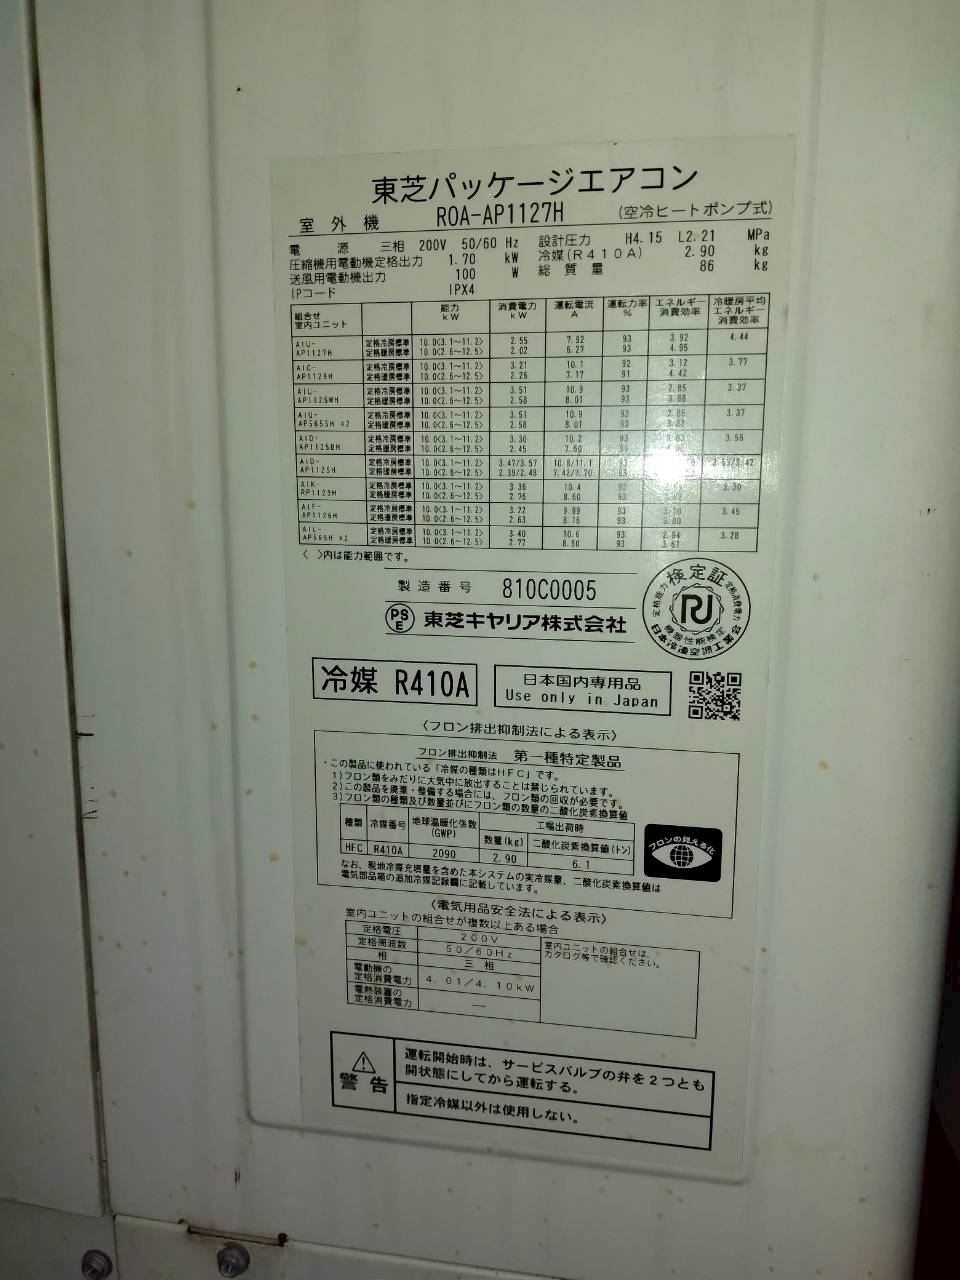 東芝パッケージエアコン
室外機 ROA-AP1127H (空冷ヒートポンプ式)
電源 三相 200V 50/60 Hz 設計圧力 H4.15 L2.21 MPa
圧縮機用電動機定格出力 1.70 kW 冷媒(R410A) 2.90 kg
送風用電動機出力 100 W 総質量 86 kg
IPコード IPX4
組合せ室内ユニット 能力 kW 消費電力 kW 運転電流 A 運転力率 % エネルギー消費効率 冷暖房平均エネルギー消費効率
AIU-AP1127H 定格冷房標準 10.0<3.1~11.2> 2.55 7.92 93 3.92 4.44
定格暖房標準 10.0<2.6~12.5> 2.02 6.27 93 4.95
AIC-AP1128H 定格冷房標準 10.0<3.1~11.2> 3.21 10.1 92 3.12 3.77
定格暖房標準 10.0<2.6~12.5> 2.26 7.17 91 4.42
AIU-AP1126WH 定格冷房標準 10.0<3.1~11.2> 3.51 10.9 93 2.85 3.37
定格暖房標準 10.0<2.6~12.5> 2.58 8.01 93 3.88
AIU-AP565SH ×2 定格冷房標準 10.0<3.1~11.2> 3.51 10.9 93 2.85 3.37
定格暖房標準 10.0<2.6~12.5> 2.58 8.01 93 3.88
定格冷房標準 10.0<3.1~11.2> 3.30 10.2 93 3.56
定格暖房標準 10.0<2.6~12.5> 2.45 7.60
AID-AP1125H 定格冷房標準 10.0<3.1~11.2> 3.47/3.57 10.8/11.1 93
定格暖房標準 10.0<2.6~12.5> 2.39/2.48 7.42/7.70
AIK-RP1123H 定格冷房標準 10.0<3.1~11.2> 3.36 10.4 3.30
定格暖房標準 10.0<2.6~12.5> 2.76 8.60 93
AIF-AP1126H 定格冷房標準 10.0<3.1~11.2> 3.22 9.99 93 3.10 3.45
定格暖房標準 10.0<2.6~12.5> 2.63 8.16 93 3.80
AIL-AP565H ×2 定格冷房標準 10.0<3.1~11.2> 3.40 10.6 93 2.94 3.28
定格暖房標準 10.0<2.6~12.5> 2.77 8.50 93 3.61
< >内は能力範囲です。
製造番号 810C0005
PSE 東芝キヤリア株式会社
検定証
定格能力 定格消費電力
機器性能検定
日本冷凍空調工業会
冷媒 R410A
日本国内専用品
Use only in Japan
〈フロン排出抑制法による表示〉
フロン排出抑制法 第一種特定製品
・この製品に使われている「冷媒の種類はHFC」です。
1)フロン類をみだりに大気中に放出することは禁じられています。
2)この製品を廃棄・整備する場合には、フロン類の回収が必要です。
3)フロン類の種類及び数量並びにフロン類の数量の二酸化炭素換算値
種類 冷媒番号 地球温暖化係数(GWP) 工場出荷時
数量(kg) 二酸化炭素換算値(トン)
HFC R410A 2090 2.90 6.1
フロンの見える化
なお、現地冷媒充填量を含めた本システムの実冷媒量、二酸化炭素換算値は
電気部品箱の追加冷媒記録欄に記載しています。
〈電気用品安全法による表示〉
室内ユニットの組合せが複数以上ある場合
定格電圧 200V
定格周波数 50/60Hz
相 三相
電動機の定格消費電力 4.01/4.10kW
電熱装置の定格消費電力 —
室内ユニットの組合せは、
カタログ等で確認ください。
警告
運転開始時は、サービスバルブの弁を2つとも
開状態にしてから運転する。
指定冷媒以外は使用しない。